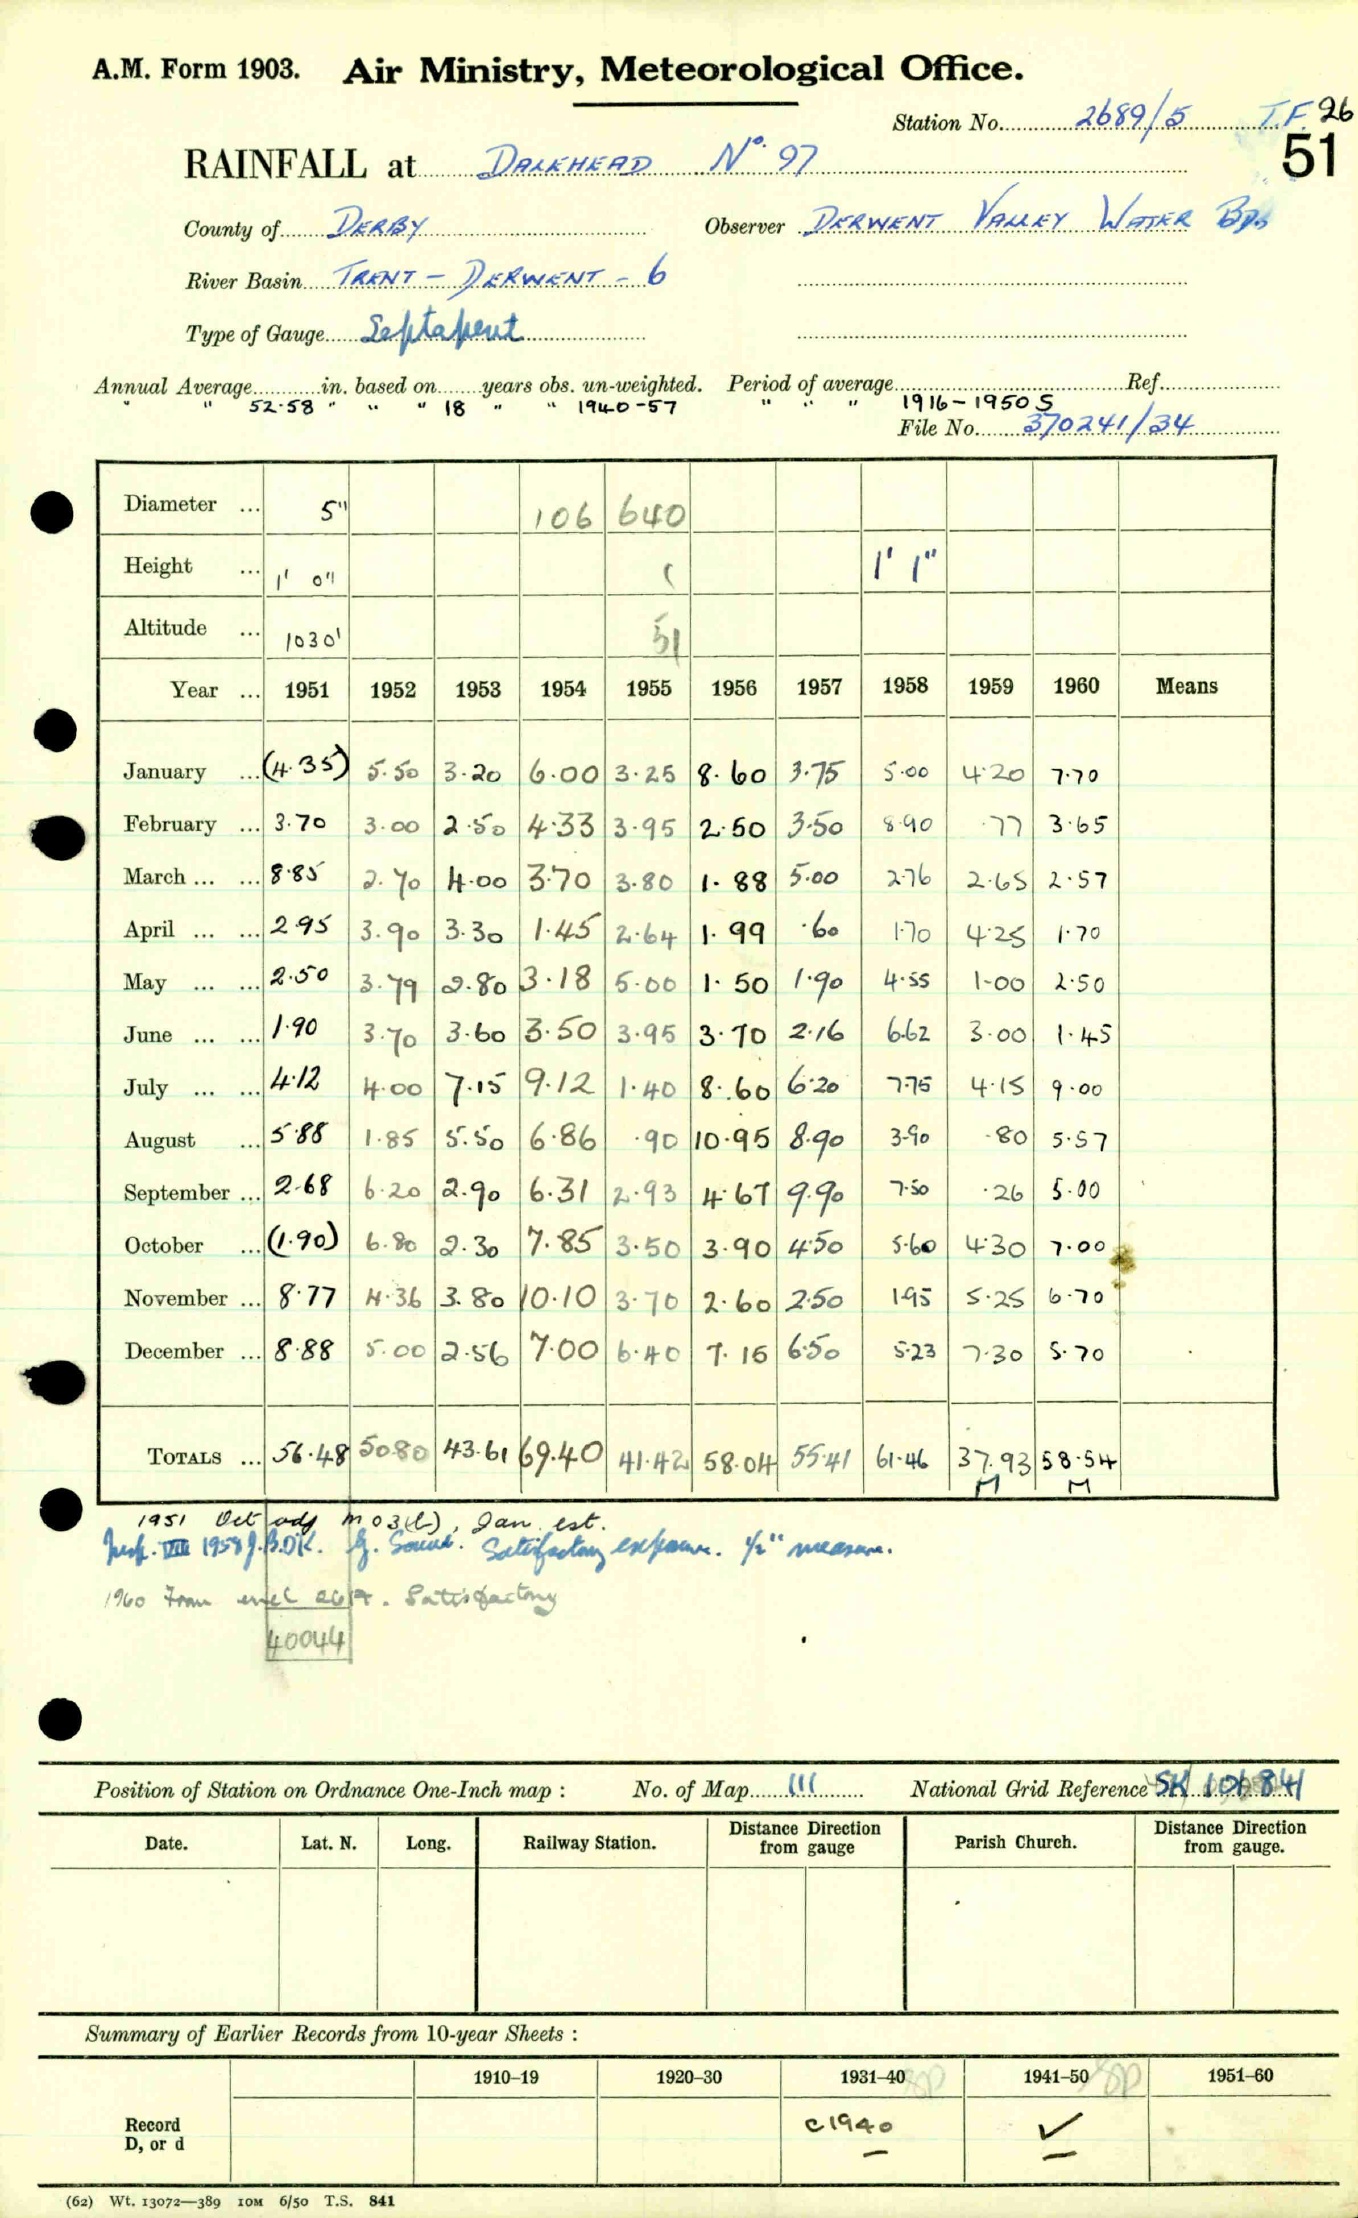 A.M. Form 1903. Air Ministry, Meteorological Office.
Station No. 2689/5 T.F. 26
51
RAINFALL at DALEHEAD No. 97
County of DERBY Observer DERWENT VALLEY WATER Bd.
River Basin TRENT - DERWENT - 6
Type of Gauge Septapent
Annual Average in. based on years obs. un-weighted. Period of average Ref.
" " 52.58 " " " 18 " " 1940-57 " " " 1916-1950 S
File No. 370241/34
Diameter ... 5" 106 640
Height ... 1' 0" ( 1' 1"
Altitude ... 1030' 51
Year ... 1951 1952 1953 1954 1955 1956 1957 1958 1959 1960 Means
January ... (4.35) 5.50 3.20 6.00 3.25 8.60 3.75 5.00 4.20 7.70
February ... 3.70 3.00 2.50 4.33 3.95 2.50 3.50 8.90 .77 3.65
March ... ... 8.85 2.70 4.00 3.70 3.80 1.88 5.00 2.76 2.65 2.57
April ... ... 2.95 3.90 3.30 1.45 2.64 1.99 .60 1.70 4.25 1.70
May ... ... 2.50 3.79 2.80 3.18 5.00 1.50 1.90 4.55 1.00 2.50
June ... ... 1.90 3.70 3.60 3.50 3.95 3.70 2.16 6.62 3.00 1.45
July ... ... 4.12 4.00 7.15 9.12 1.40 8.60 6.20 7.75 4.15 9.00
August ... 5.88 1.85 5.50 6.86 .90 10.95 8.90 3.90 .80 5.57
September ... 2.68 6.20 2.90 6.31 2.93 4.67 9.90 7.50 .26 5.00
October ... (1.90) 6.80 2.30 7.85 3.50 3.90 4.50 5.60 4.30 7.00
November ... 8.77 4.36 3.80 10.10 3.70 2.60 2.50 1.95 5.25 6.70
December ... 8.88 5.00 2.56 7.00 6.40 7.15 6.50 5.23 7.30 5.70
TOTALS ... 56.48 50.80 43.61 69.40 41.42 58.04 55.41 61.46 37.93 58.54
M M
1951 Oct adj M 03(L), Jan est.
Insp. VIII 1958 J.B.DK. G. Sound. Satisfactory exposure. 1/2" measure.
1960 From Satisfactory
40044
Position of Station on Ordnance One-Inch map : No. of Map 111 National Grid Reference SK 101 841
Date. Lat. N. Long. Railway Station. Distance from Direction gauge Parish Church. Distance from Direction gauge.
Summary of Earlier Records from 10-year Sheets :
1910–19 1920–30 1931–40 1941–50 1951–60
Record c1940 ✓
D, or d
(62) Wt. 13072—389 10M 6/50 T.S. 841